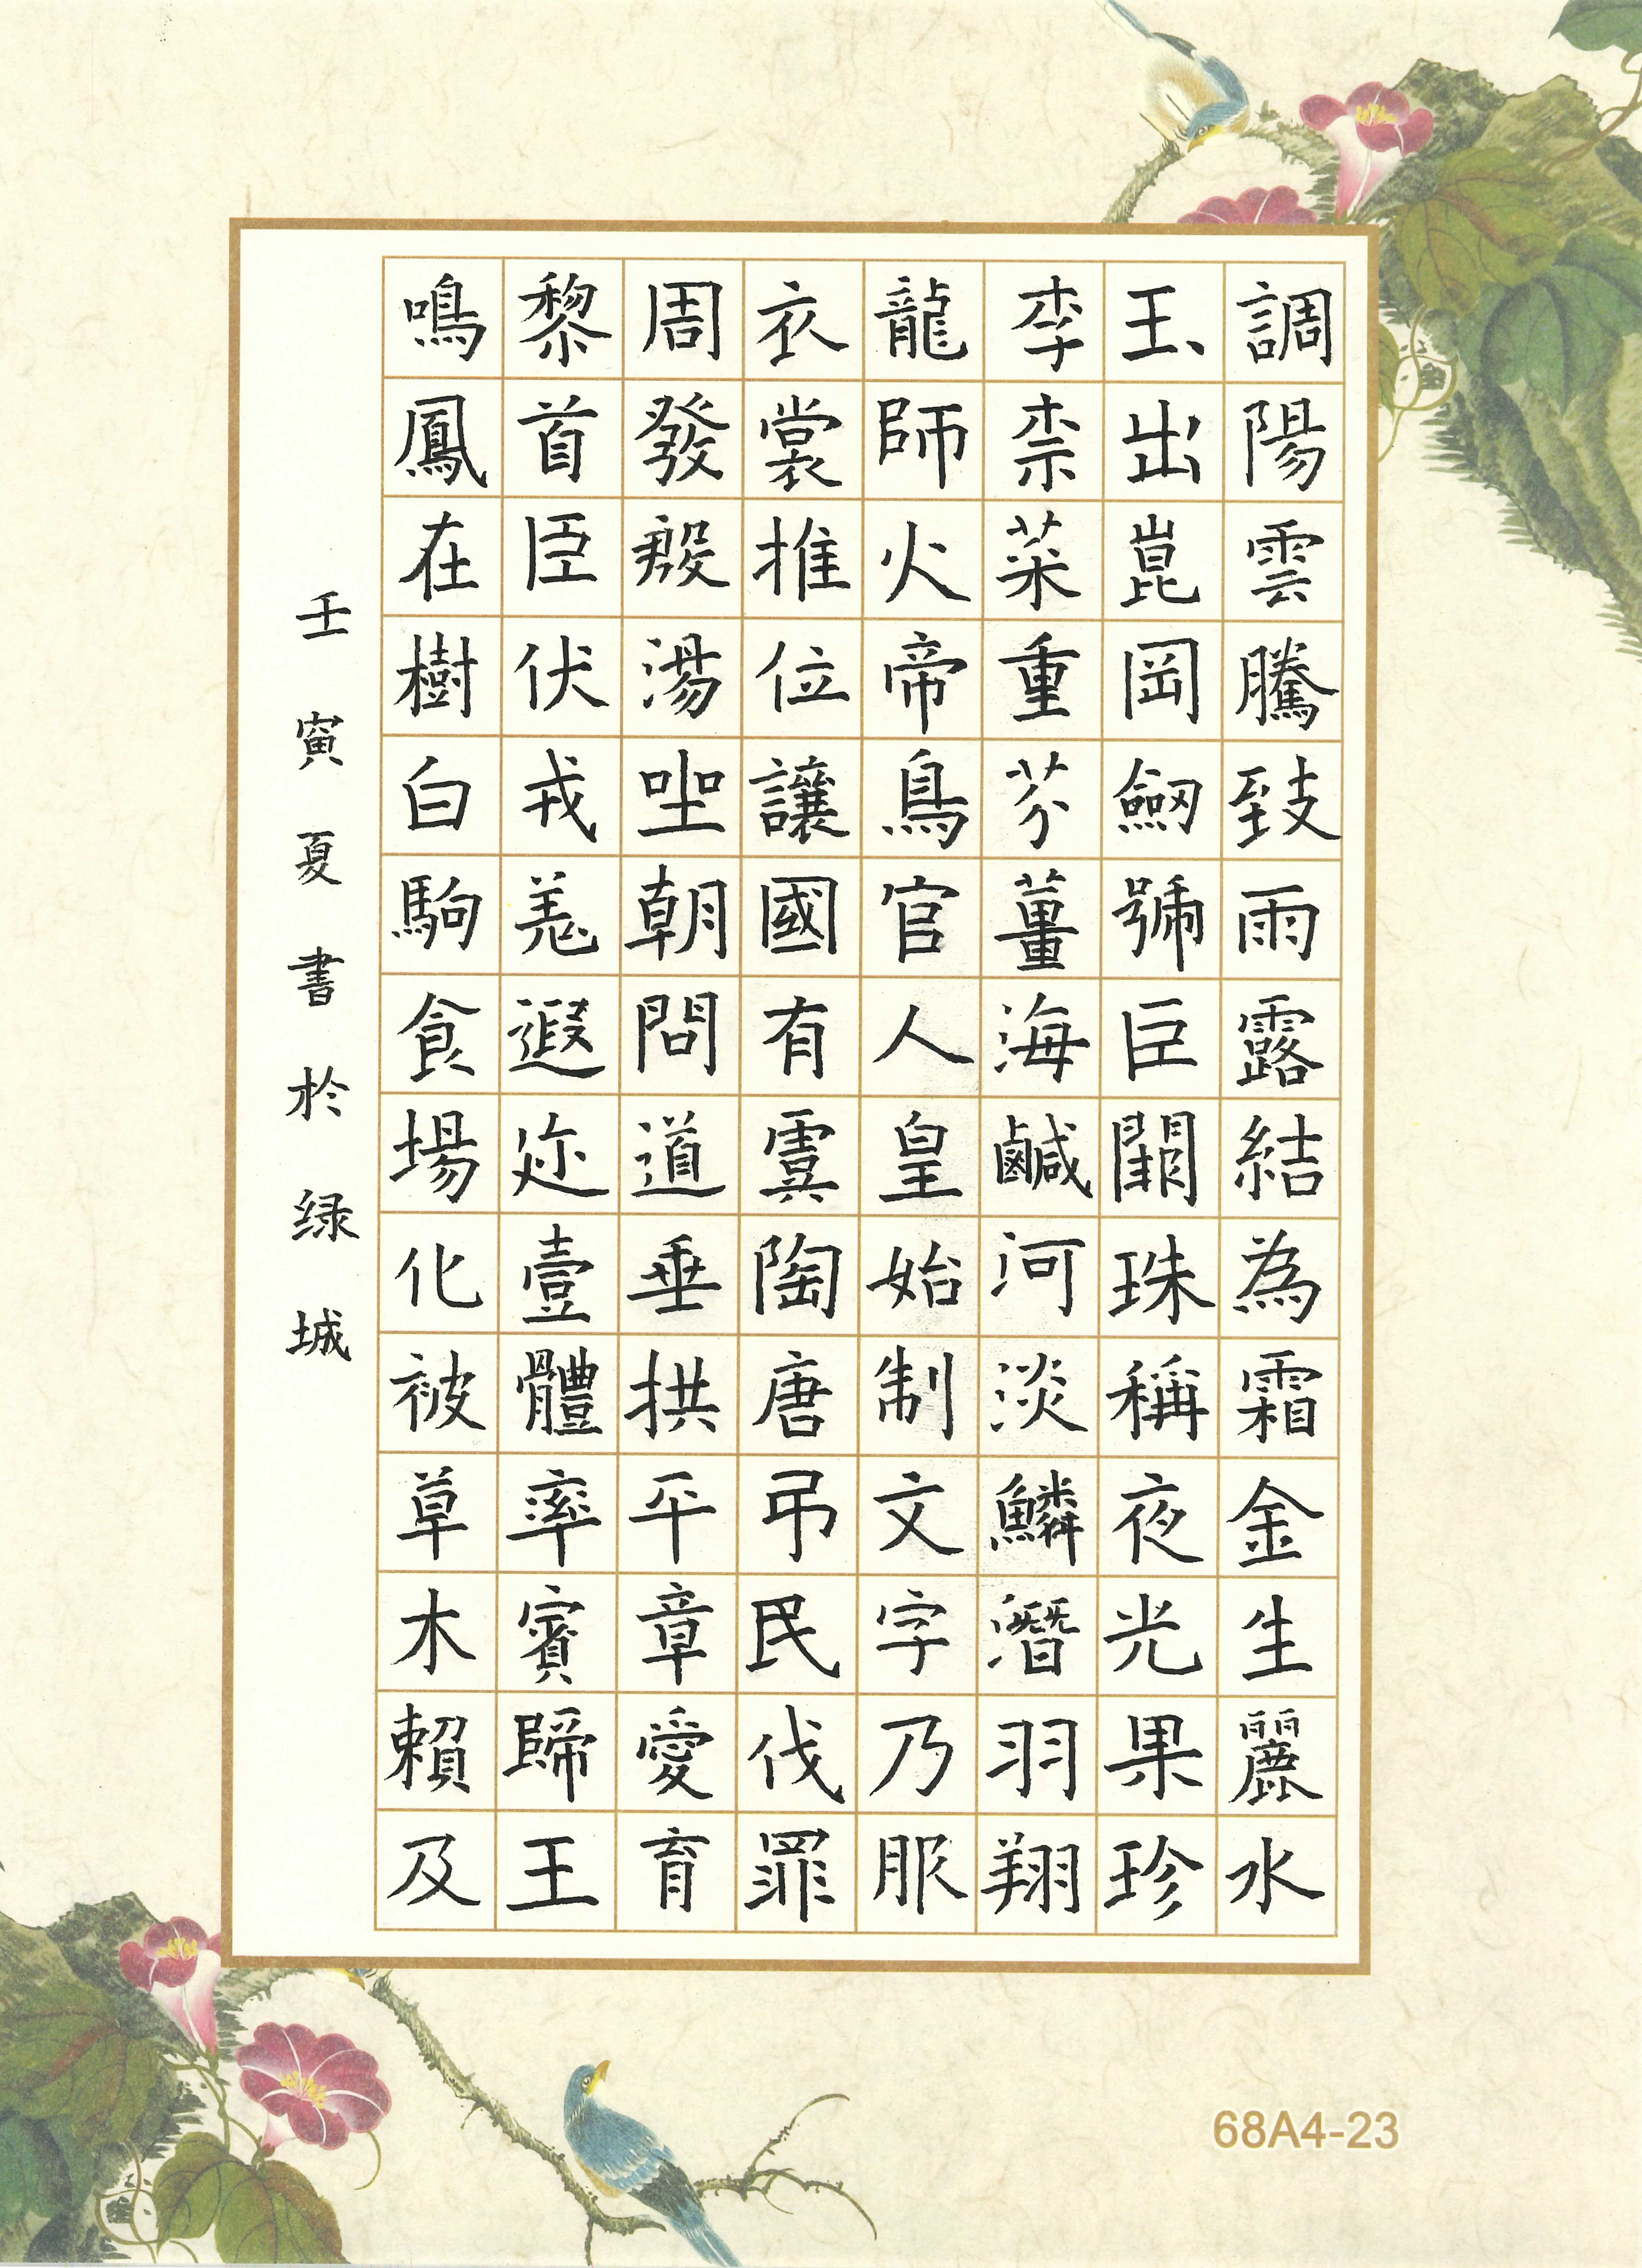 調陽雲騰致雨露結為霜金生麗水
玉出崑岡劒號巨闕珠稱夜光果珍
李柰菜重芥薑海鹹河淡鱗潛羽翔
龍師火帝鳥官人皇始制文字乃服
衣裳推位讓國有虞陶唐弔民伐罪
周發殷湯坐朝問道垂拱平章愛育
黎首臣伏戎羌遐迩壹體率賓歸王
鳴鳳在樹白駒食場化被草木賴及
壬寅夏書於绿城
68A4-23